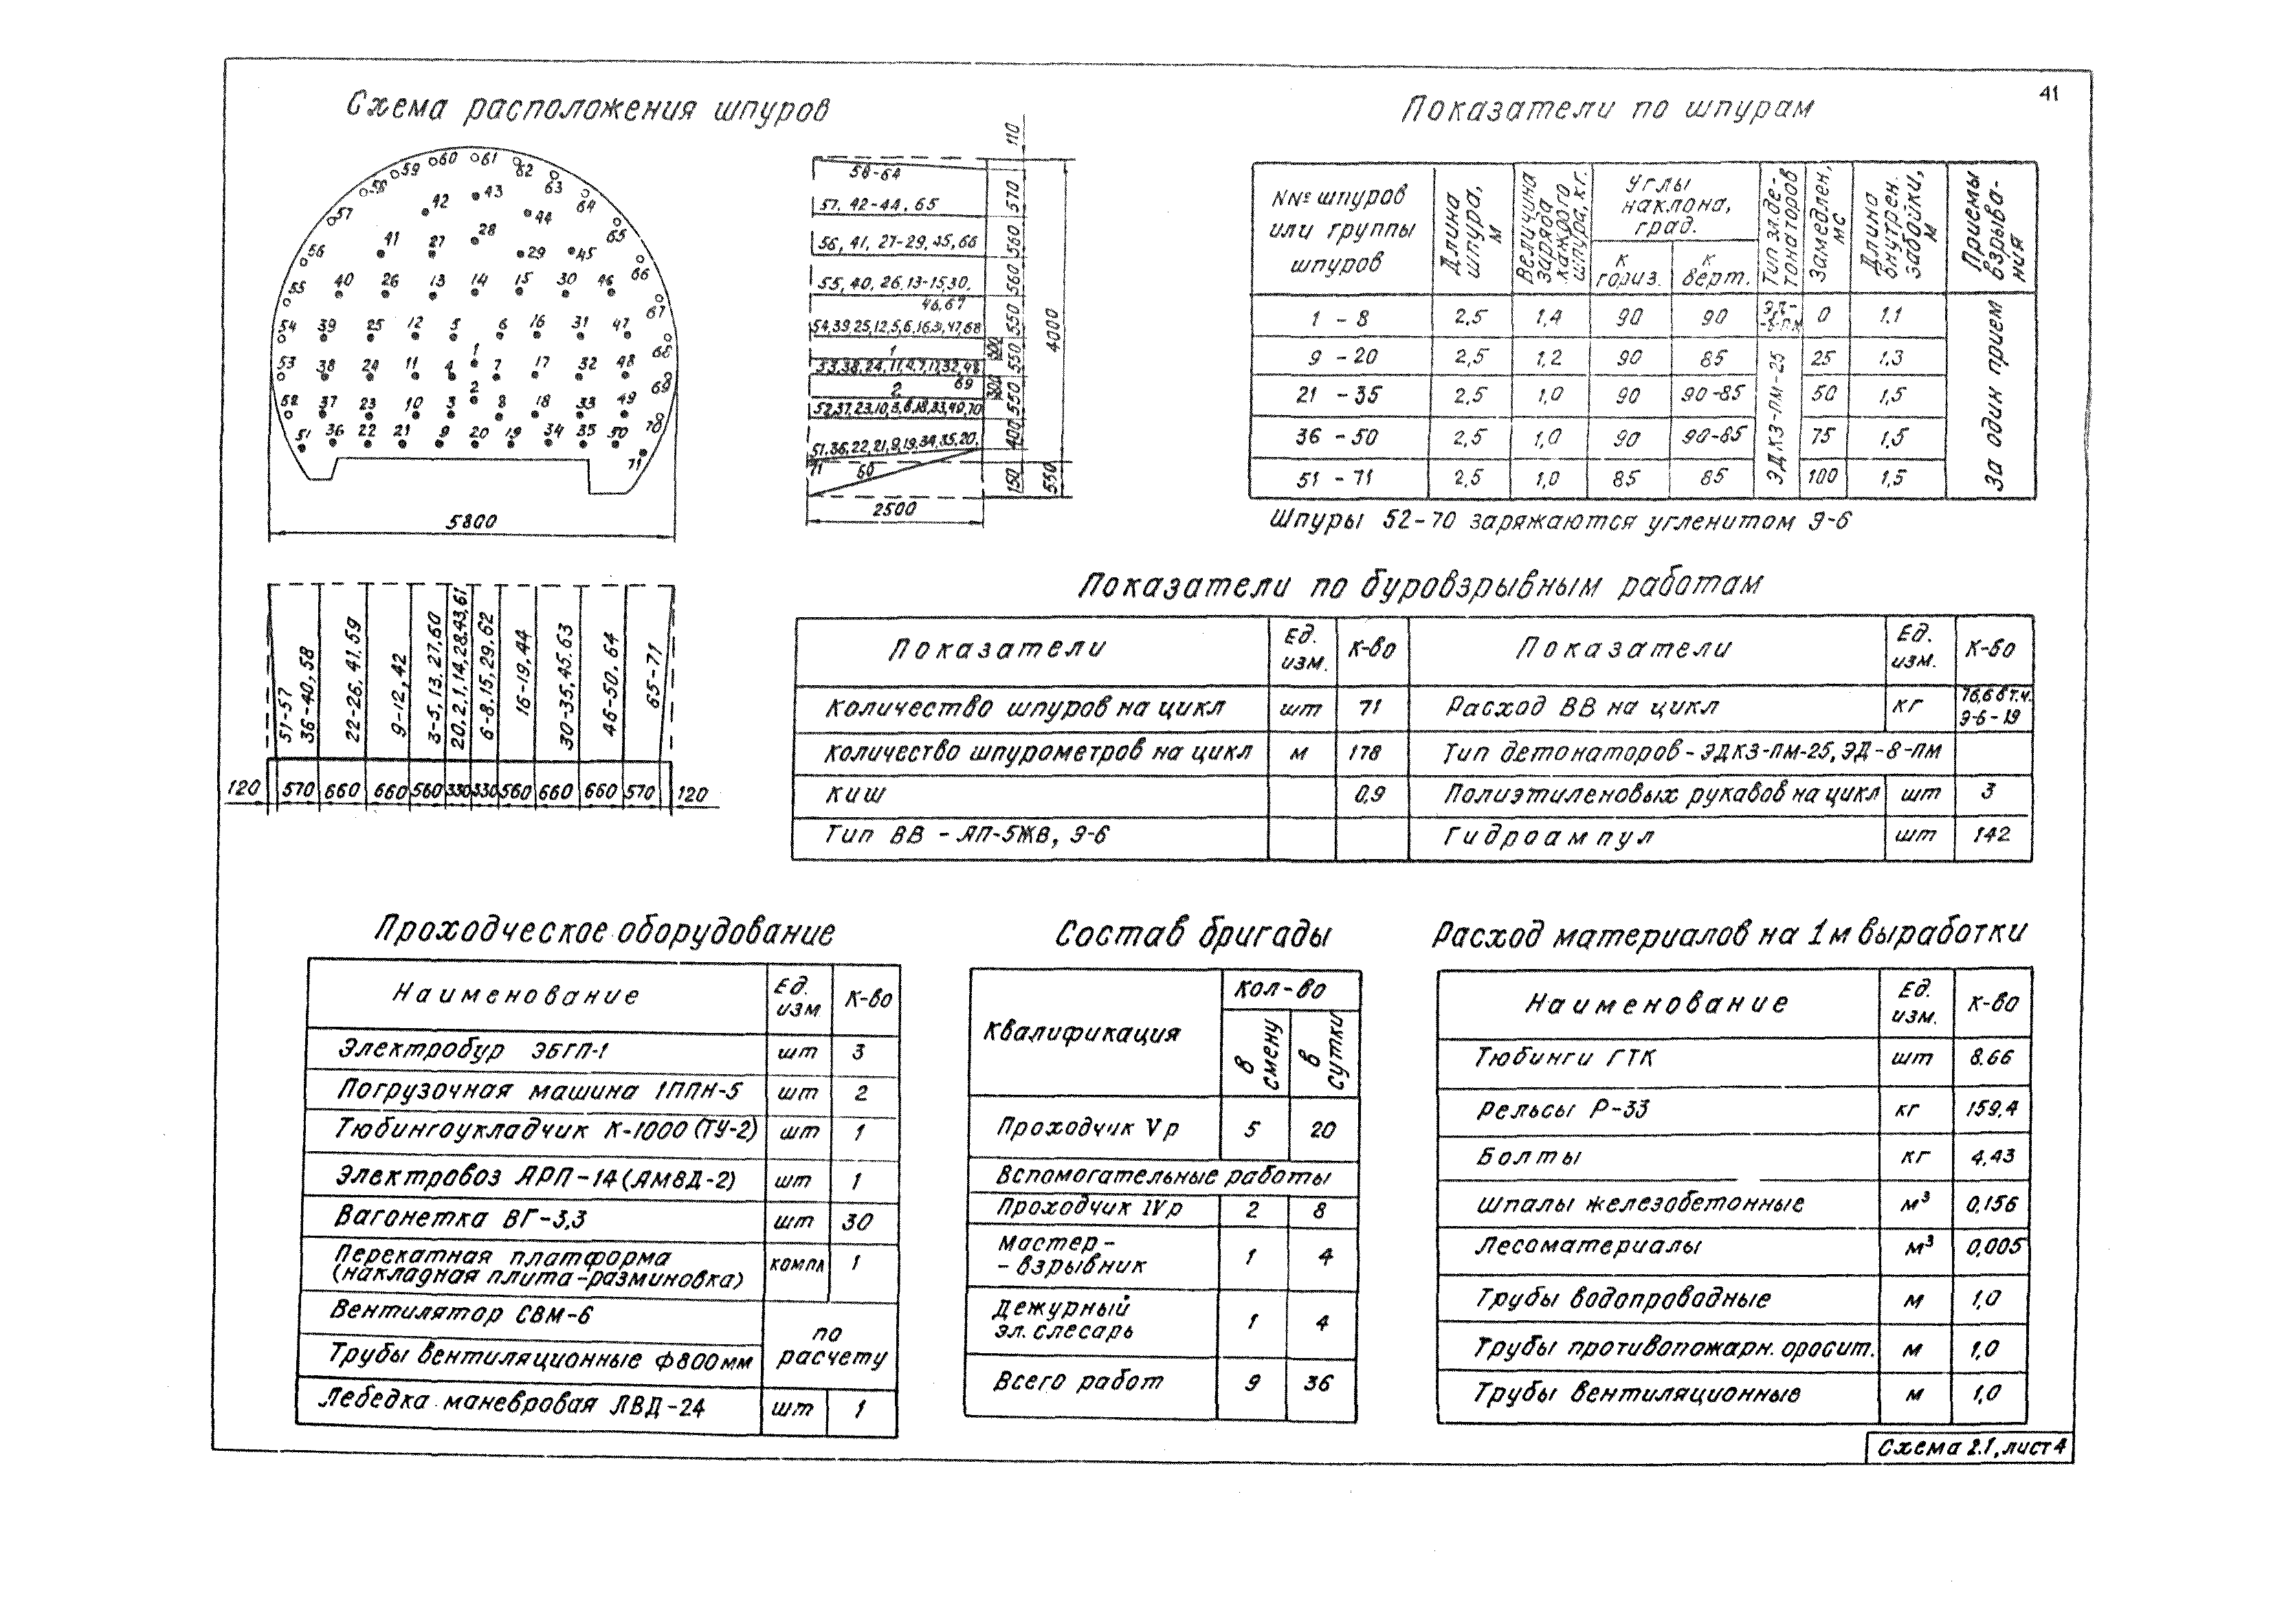 41
Схема расположения шпуров
60 61
59 62
58 63
42 43
57 44 64
28 65
41 27
56 29 45
40 26 13 14 15 30 46 66
55
67
54 39 25 12 5 6 16 31 47
1 68
53 38 24 11 4 7 17 32 48
2 69
52 37 23 10 3 8 18 33 49
51 36 22 21 9 20 19 34 35 50 70
71
5800
110
58-64
570
57, 42-44, 65
56, 41, 27-29, 45, 66
560
55, 40, 26, 13-15, 30,
46, 67
560
54,39,25,12,5,6,16,31,47,68
550
1
300
53,38,24,11,4,7,17,32,48
550
69
2
300
550
400
51,36,22,21,9,19,34,35,20,
71 50
150
550
4000
2500
51-57
36-40, 58
22-26, 41, 59
9-12, 42
3-5, 13, 27, 60
20, 2, 1, 14, 28, 43, 61
6-8, 15, 29, 62
16-19, 44
30-35, 45, 63
46-50, 64
65-71
120 570 660 660 560 330 330 560 660 660 570 120
Показатели по шпурам
NNº шпуров или группы шпуров
Длина шпура, м
Величина заряда каждого шпура, кг.
Углы наклона, град.
к гориз.
к верт.
Тип эл.детонаторов
Замедлен, мс
Длина внутрен. забойки, м
Приемы взрыва-ния
1 - 8 2.5 1,4 90 90 ЭД-8-ПМ 0 1.1
9 - 20 2,5 1,2 90 85 25 1.3
21 - 35 2.5 1,0 90 90-85 50 1,5
36 - 50 2,5 1,0 90 90-85 75 1,5
51 - 71 2,5 1,0 85 85 100 1,5
ЭДКЗ-ПМ-25
За один прием
Шпуры 52-70 заряжаются угленитом Э-6
Показатели по буровзрывным работам
Показатели Ед. изм. К-во Показатели Ед. изм. К-во
Количество шпуров на цикл шт 71 Расход ВВ на цикл кг 76,6 в т.ч. Э-6-19
Количество шпурометров на цикл м 178 Тип детонаторов - ЭДКЗ-ПМ-25, ЭД-8-ПМ
КИШ 0,9 Полиэтиленовых рукавов на цикл шт 3
Тип ВВ - АП-5ЖВ, Э-6 Гидроампул шт 142
Проходческое оборудование
Наименование Ед. изм К-во
Электробур ЭБГП-1 шт 3
Погрузочная машина 1ППН-5 шт 2
Тюбингоукладчик К-1000 (ТУ-2) шт 1
Электровоз АРП-14 (АМ8Д-2) шт 1
Вагонетка ВГ-3,3 шт 30
Перекатная платформа
(накладная плита-разминовка) компл 1
Вентилятор СВМ-6
Трубы вентиляционные ф800мм
по расчету
Лебедка маневровая ЛВД-24 шт 1
Состав бригады
Квалификация
Кол-во
в смену
в сутки
Проходчик Vр 5 20
Вспомогательные работы
Проходчик IVр 2 8
Мастер-
-взрывник 1 4
Дежурный
эл. слесарь 1 4
Всего работ 9 36
Расход материалов на 1м выработки
Наименование Ед. изм. К-во
Тюбинги ГТК шт 8.66
Рельсы Р-33 кг 159,4
Болты кг 4,43
Шпалы железобетонные м³ 0,156
Лесоматериалы м³ 0,005
Трубы водопроводные м 1,0
Трубы противопожарн. оросит. м 1,0
Трубы вентиляционные м 1,0
Схема 2.1, лист 4